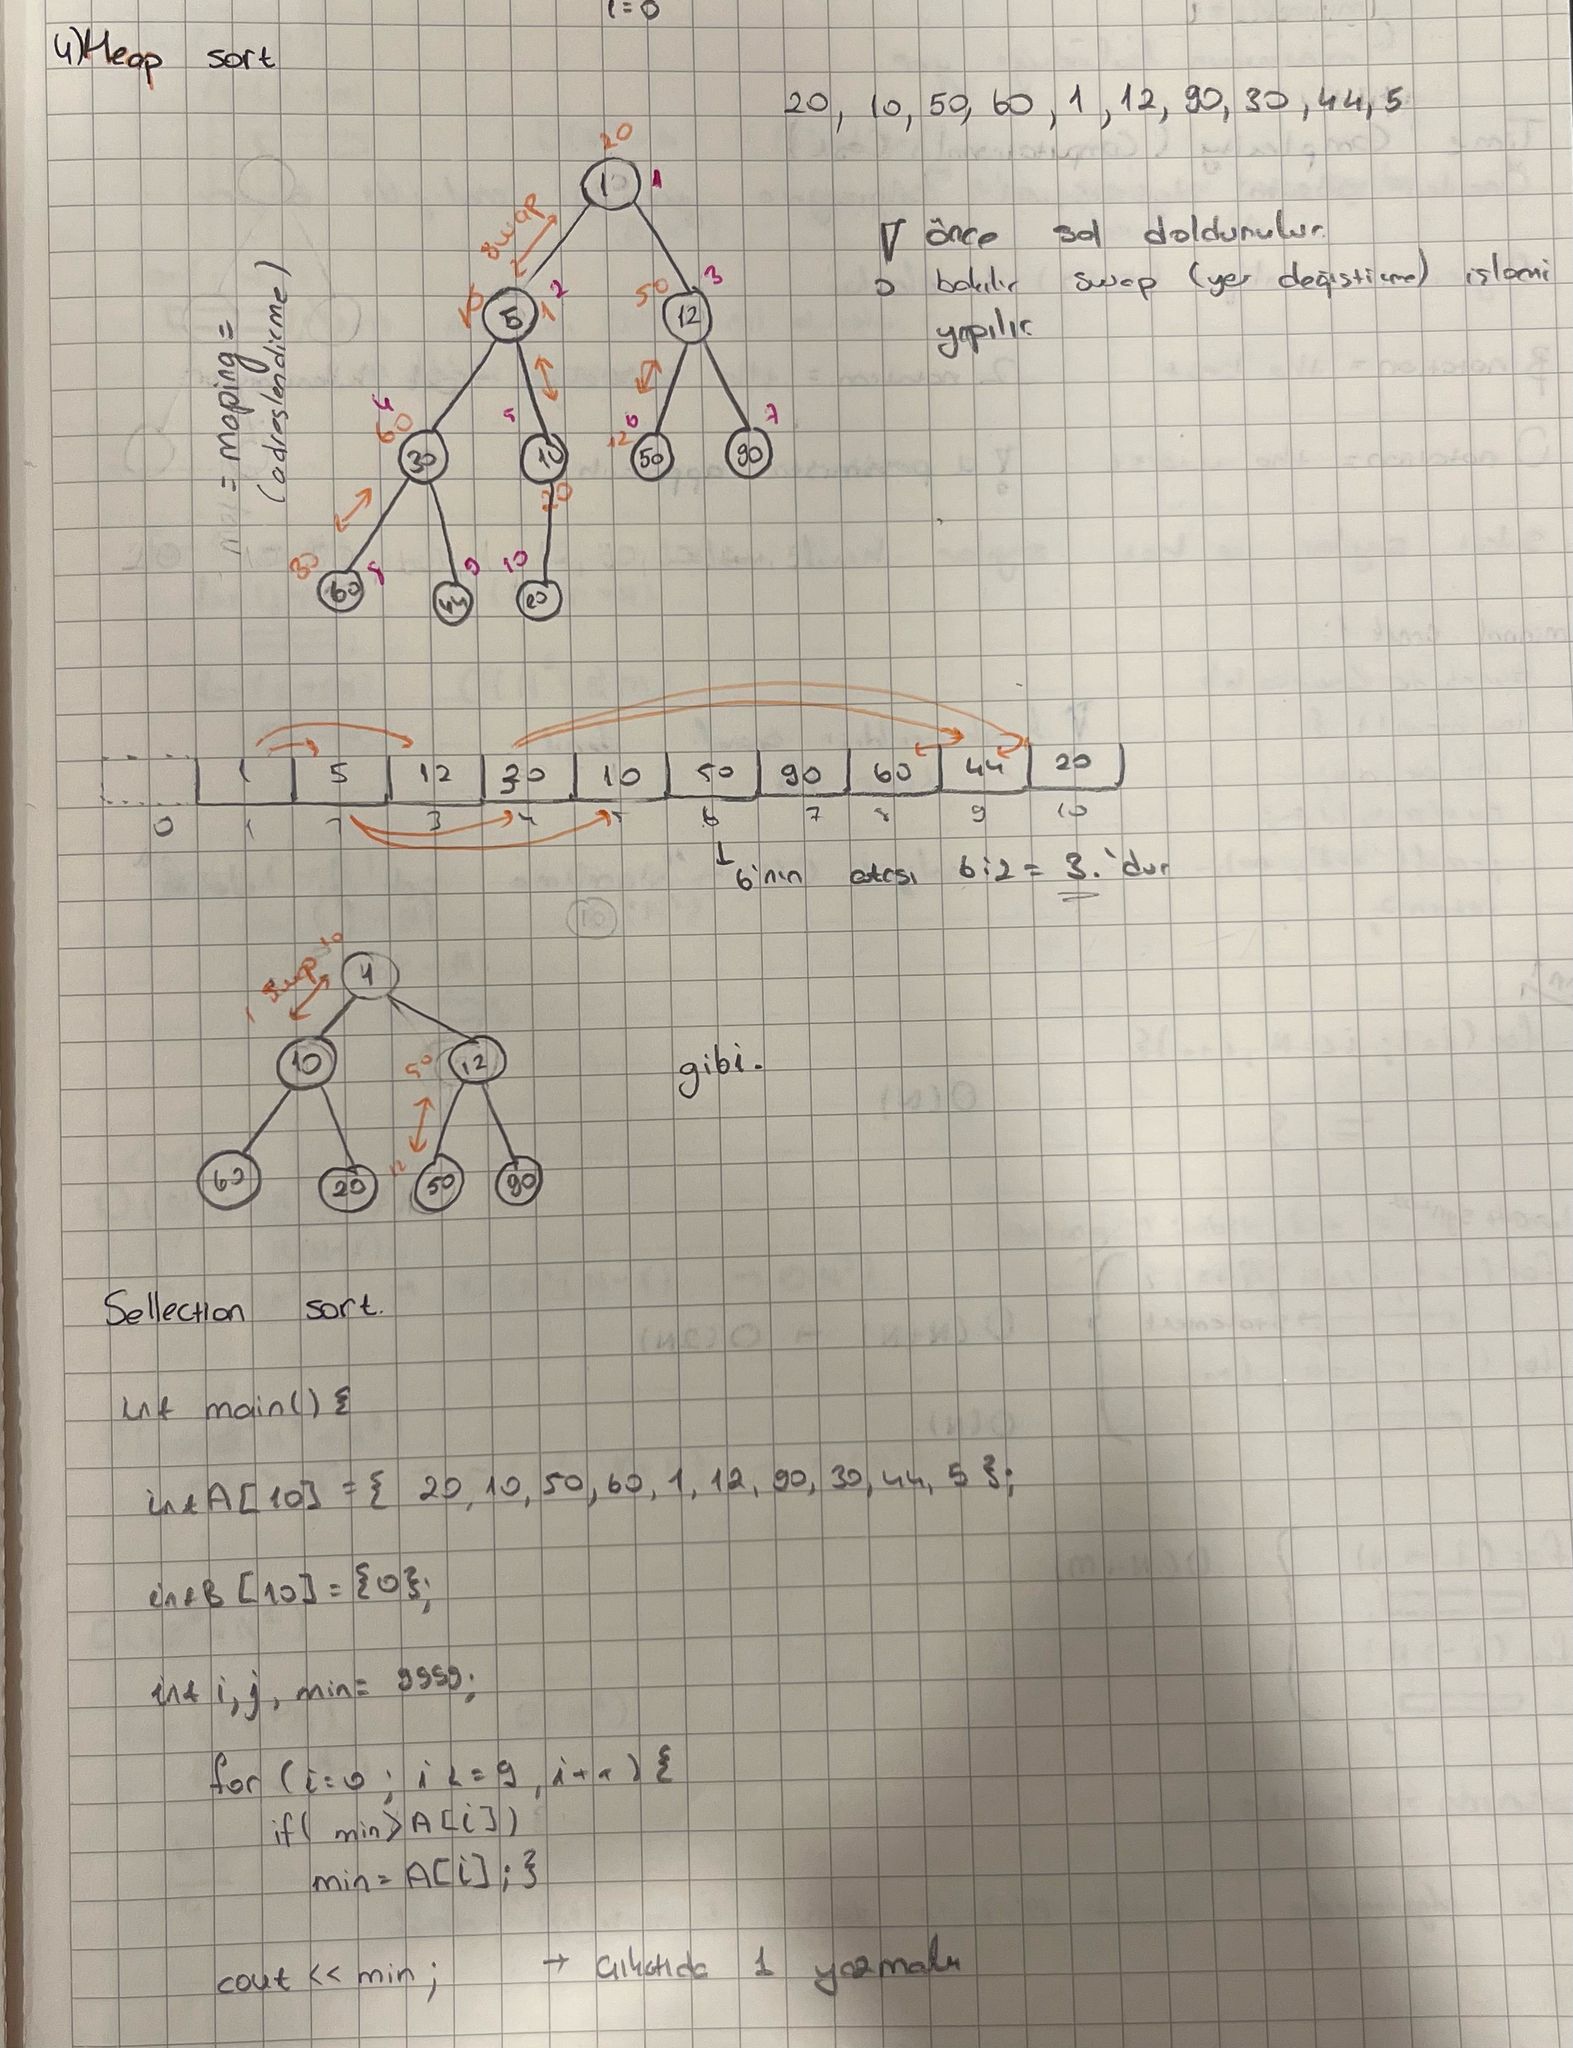 i=0
4) Heap sort
20, 10, 50, 60, 1, 12, 90, 30, 44, 5
20
1 1
swap
önce sol doldurulur.
bakılır swap (yer değiştirme) işlemi
yapılır
= maping =
(adreslendirme)
10 5 1 2
50 12 3
4 60 30
5 10 20
6 12 50
7 90
30 60 8
44 9
10 20
1 5 12 30 10 50 90 60 44 20
0 1 2 3 4 5 6 7 8 9 10
6'nın atası 6:2 = 3.'dür
10
swap
1
1
10
50 12
gibi.
60 20 12 50 90
Sellection sort.
int main() {
int A[10] = { 20, 10, 50, 60, 1, 12, 90, 30, 44, 5 };
int B [10] = {0};
int i, j, min = 9999;
for (i=0; i <= 9, i++) {
if( min > A[i])
min = A[i]; }
cout << min; → Çıktıda 1 yazmalı